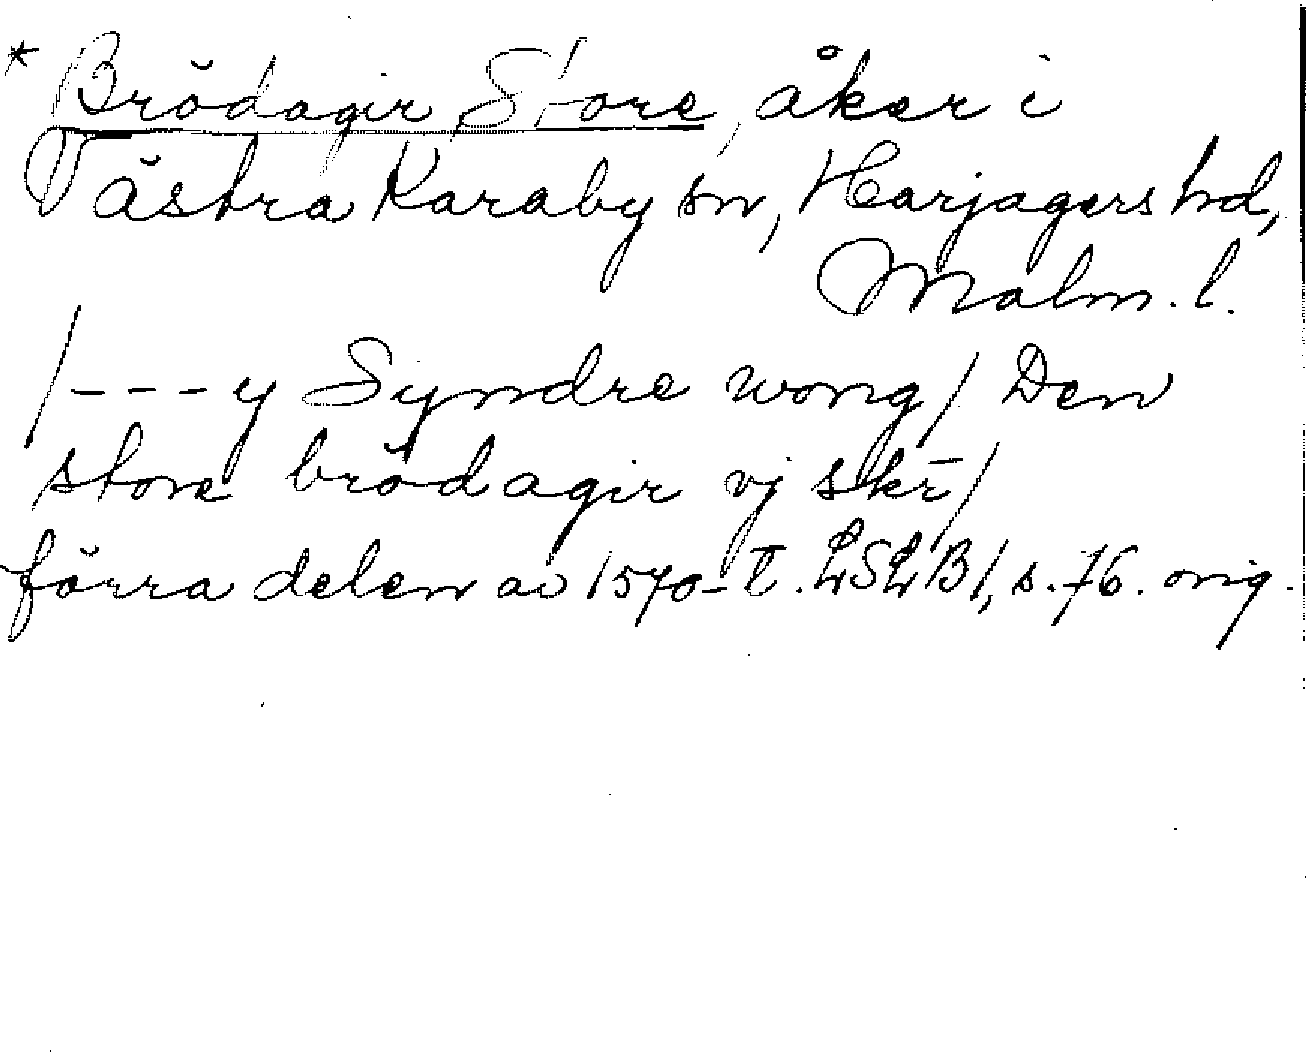 * Brödagir, Store, åker i
Västra Karaby sn, Harjagers hd,
Malm. l.
/---y Syndre wong/ Den
store brödagir vj skr̄/
förra delen av 1570-t. LSLB1, s. 76. orig.